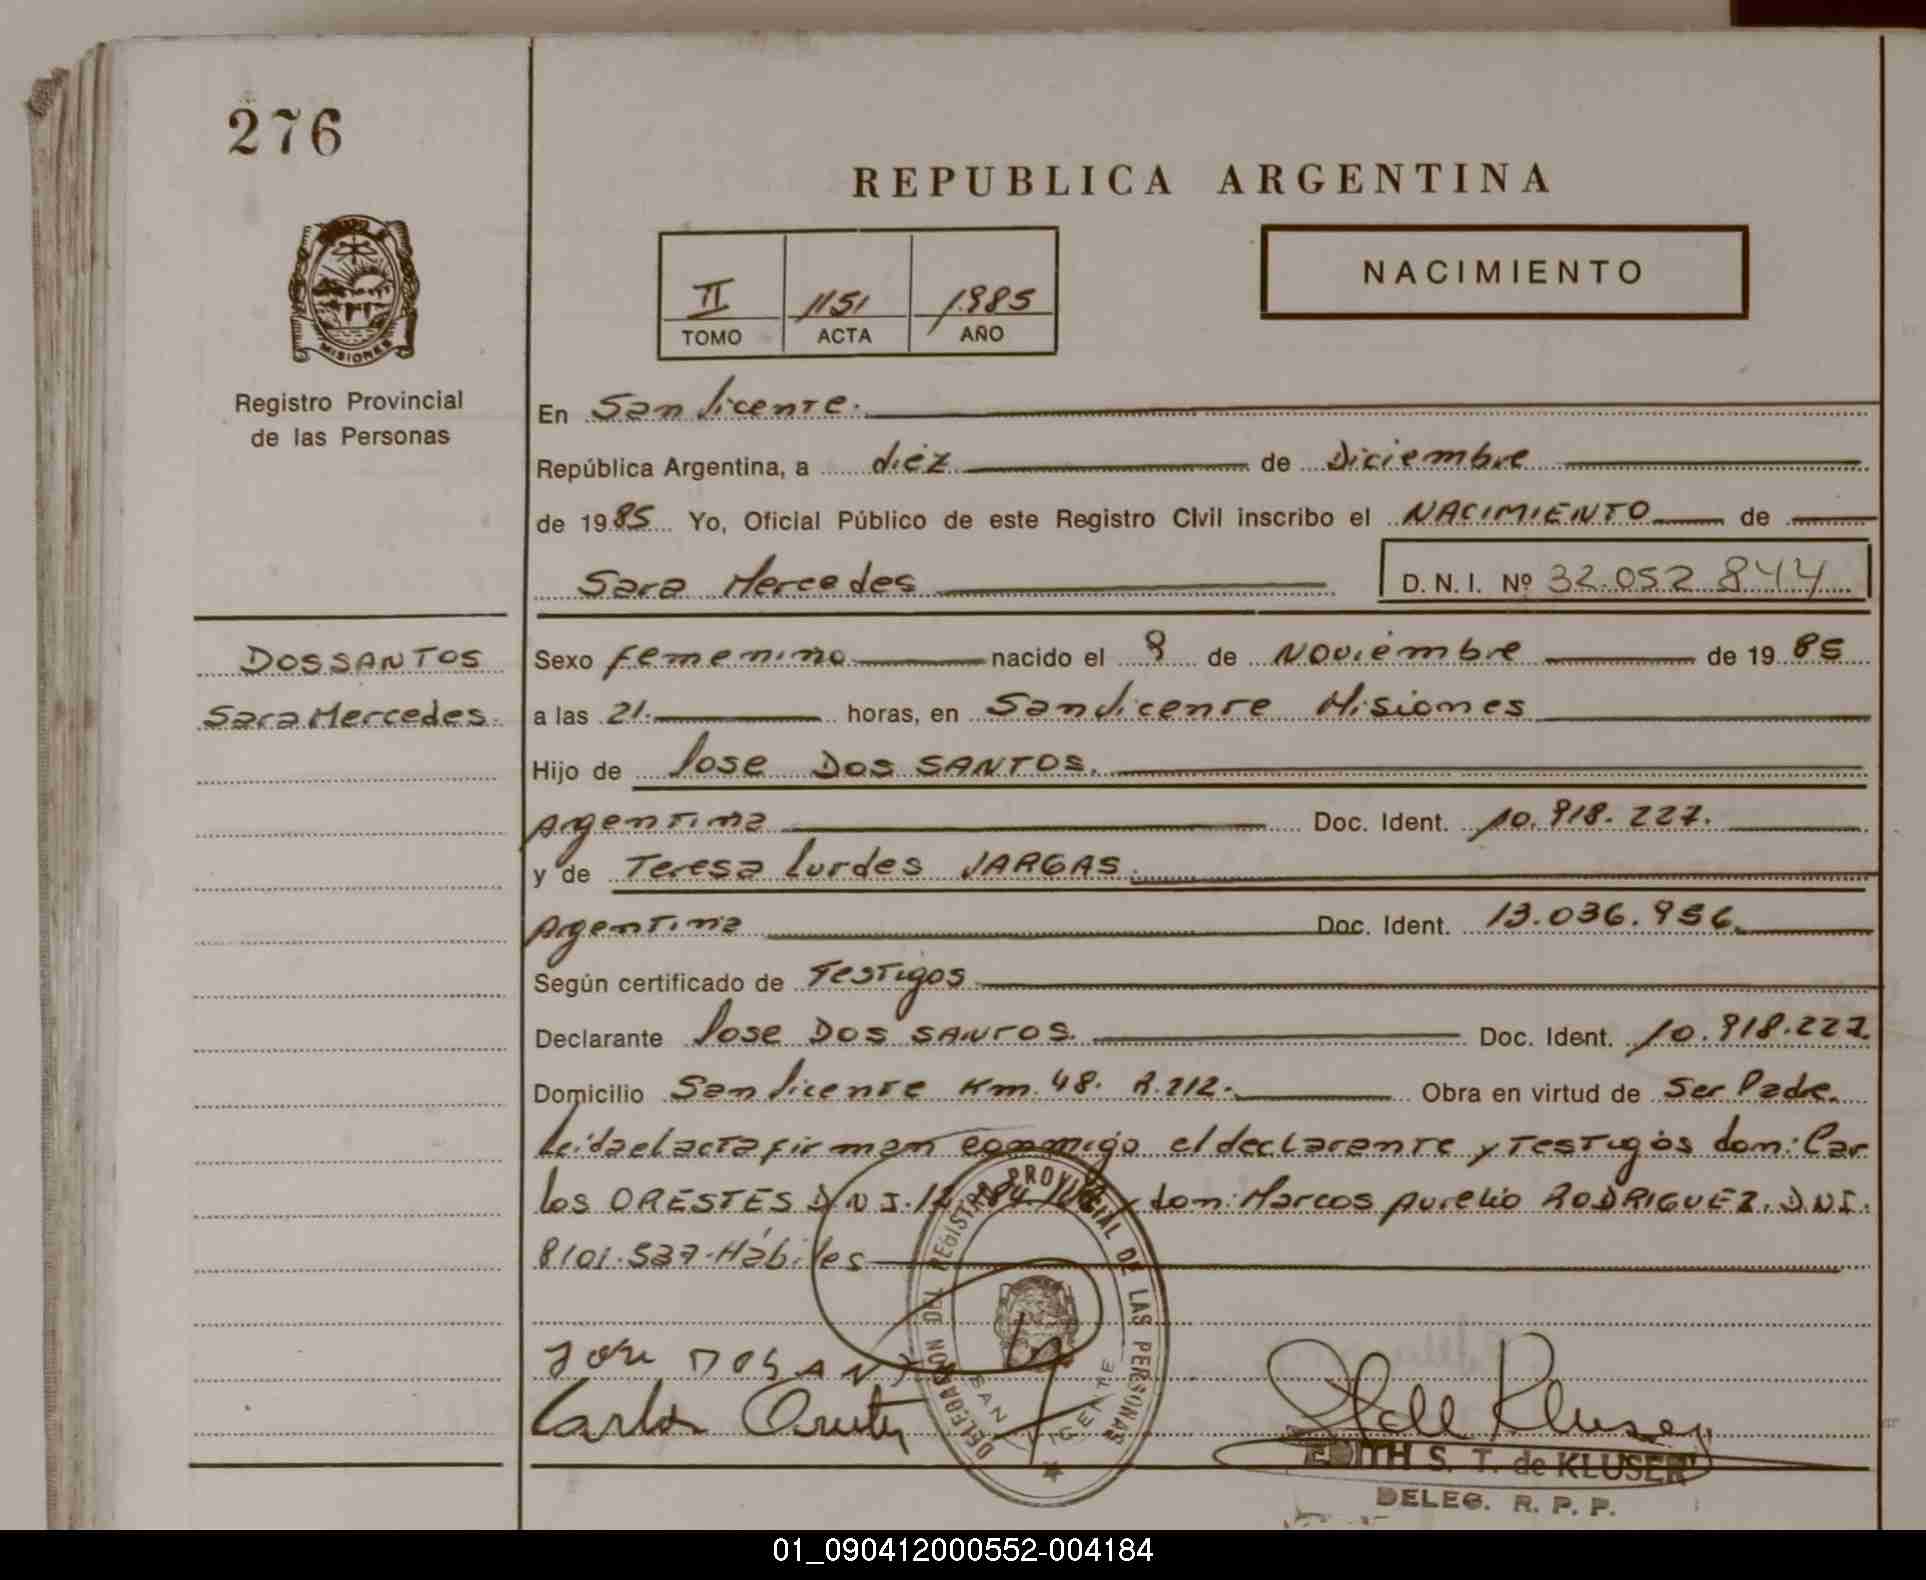 276
REPUBLICA ARGENTINA
NACIMIENTO
II 1151 1985
TOMO ACTA AÑO
MISIONES
Registro Provincial
de las Personas
En San Vicente.
República Argentina, a diéz de Diciembre
de 1985 Yo, Oficial Público de este Registro Civil inscribo el NACIMIENTO de
Sara Mercedes D. N. I. Nº 32.052.844
DOSSANTOS
Sara Mercedes.
Sexo femenino nacido el 9 de Noviembre de 1985
a las 21. horas, en San Vicente Misiones
Hijo de Jose Dos SANTOS.
Argentina Doc. Ident. 10.918.227.
y de Teresa Lurdes VARGAS.
Argentina Doc. Ident. 13.036.956.
Según certificado de Testigos
Declarante Jose Dos SANTOS. Doc. Ident. 10.918.227
Domicilio San Vicente Km. 48. R.212. Obra en virtud de Ser Padre.
Leida el acta firman conmigo el declarante y Testigos don: Car
los ORESTES D N I. y don: Marcos Aurelio RODRIGUEZ. D.N.I.
8101.537-Hábiles
DELEGACION DEL REGISTRO PROVINCIAL DE LAS PERSONAS
SAN VICENTE
José DOSANT
Carlos
EDITH S. T. de KLUSER
DELEG. R. P. P.
01_090412000552-004184